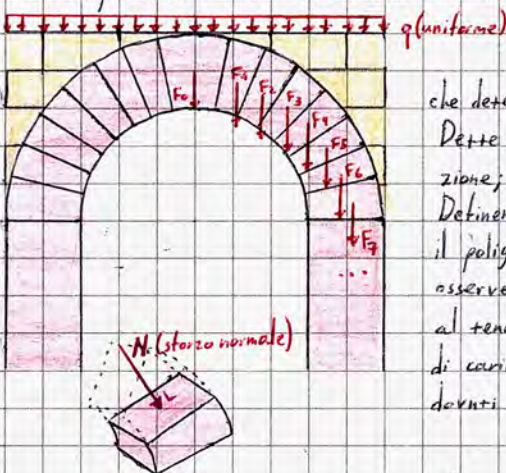 q (uniforme)
F₀
F₁
F₂
F₃
F₄
F₅
F₆
F₇
...
N (sforzo normale)
che dete
Dette
zione;
Definen
il polig
osserve
al tend
di cari
dovuti